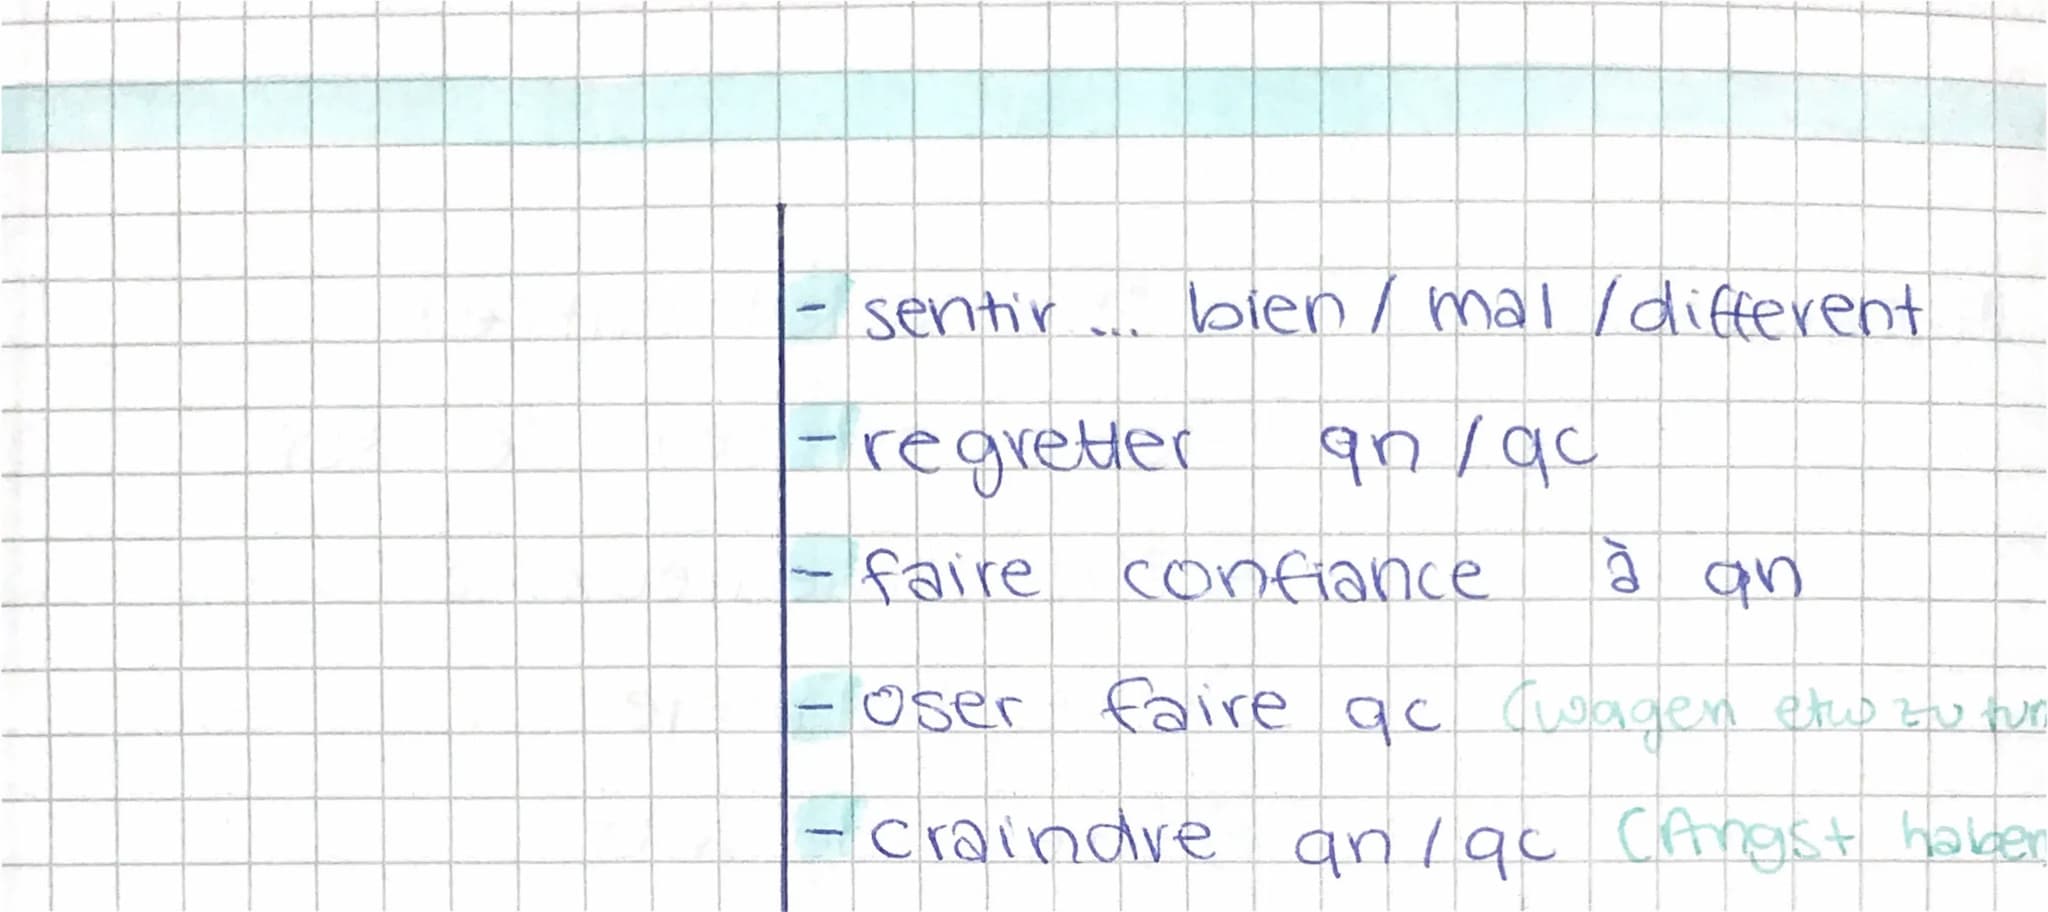 - sentir ... bien / mal / different
- regretter qn / qc
- faire confiance à qn
- oser faire qc (wagen etw zu tun
- craindre qn / qc (Angst haben